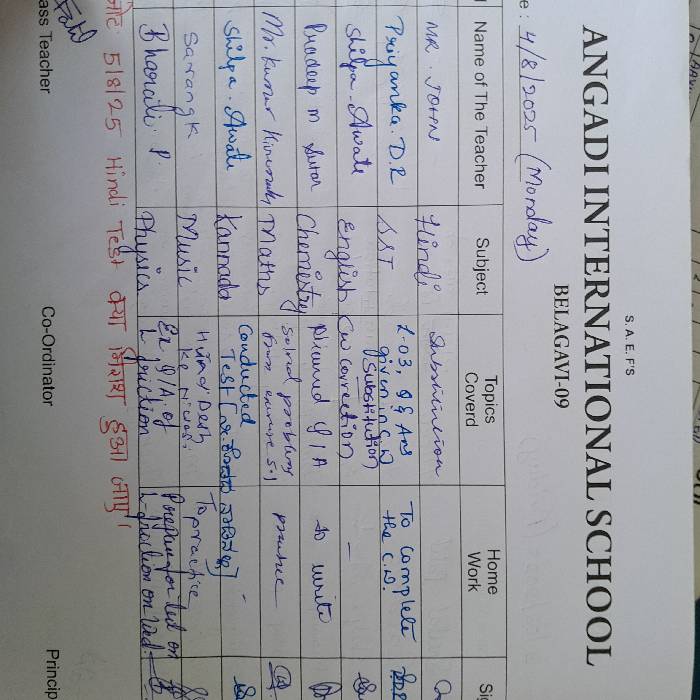 S.A.E.F'S
ANGADI INTERNATIONAL SCHOOL
BELAGAVI-09
e: 4/8/2025 (Monday)
Name of The Teacher Subject Topics Coverd Home Work Sig
MR. JOHN Hindi Substitution
Priyanka. D.R SST L-03, Q & Ans given in C.W (Substitution) To complete the C.W.
Shilpa. Awate English CW correction -
Pradeep M Sutar Chemistry Q/A to write
Mr. Kumar Maths solved problems from exercise 5.1 practice
Shilpa. Awate Kannada Conducted Test -
Sarang K Music Hind Desh ke Niwasi To practice
Bharati. P. Physics Ex, Q/A, of L-friction Prepare for test on L-friction on Wed.
नोट: 5/8/25 Hindi Test हुआ जाए।
ass Teacher Co-Ordinator Princip